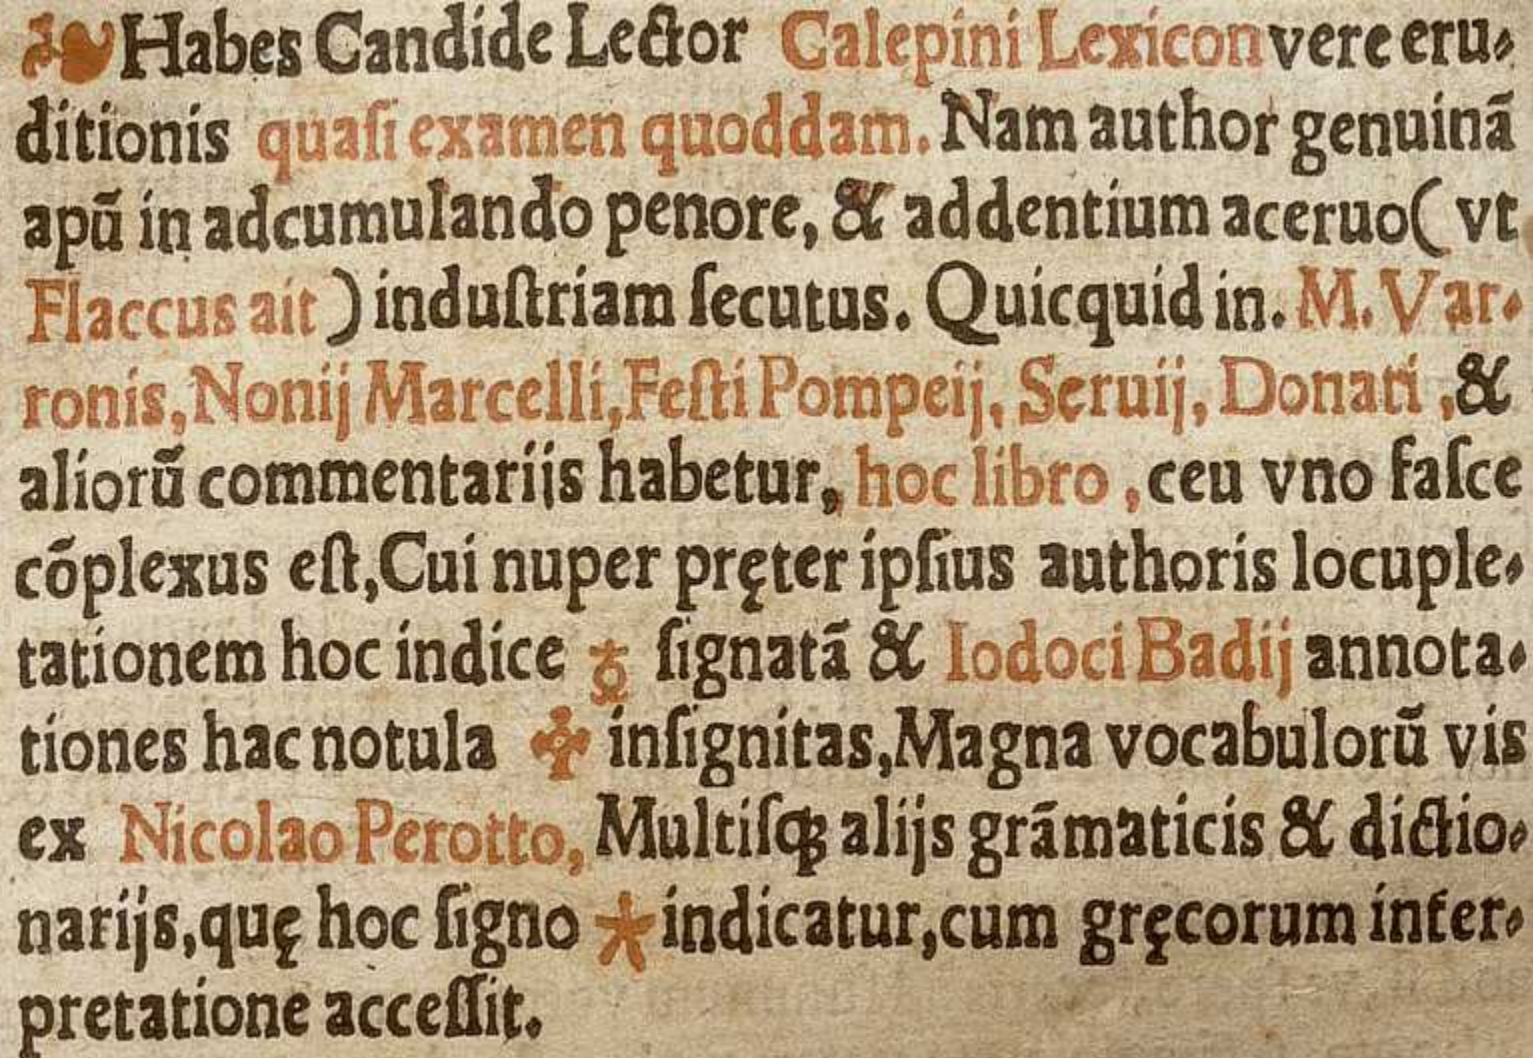 ❧ Habes Candide Lector Calepini Lexicon vere eru⸗
ditionis quaſi examen quoddam. Nam author genuinã
apũ in adcumulando penore, & addentium aceruo ( vt
Flaccus ait ) induſtriam ſecutus. Quicquid in. M. Var⸗
ronis, Nonij Marcelli, Feſti Pompeij, Seruij, Donati , &
aliorũ commentariis habetur, hoc libro , ceu vno faſce
cõplexus eſt, Cui nuper pręter ipſius authoris locuple⸗
tationem hoc indice ♁ ſignatã & Iodoci Badij annota⸗
tiones hac notula ✣ inſignitas, Magna vocabulorũ vis
ex Nicolao Perotto, Multiſqꝫ alijs grãmaticis & dictio⸗
narijs, quę hoc ſigno * indicatur, cum gręcorum inter⸗
pretatione acceſſit.